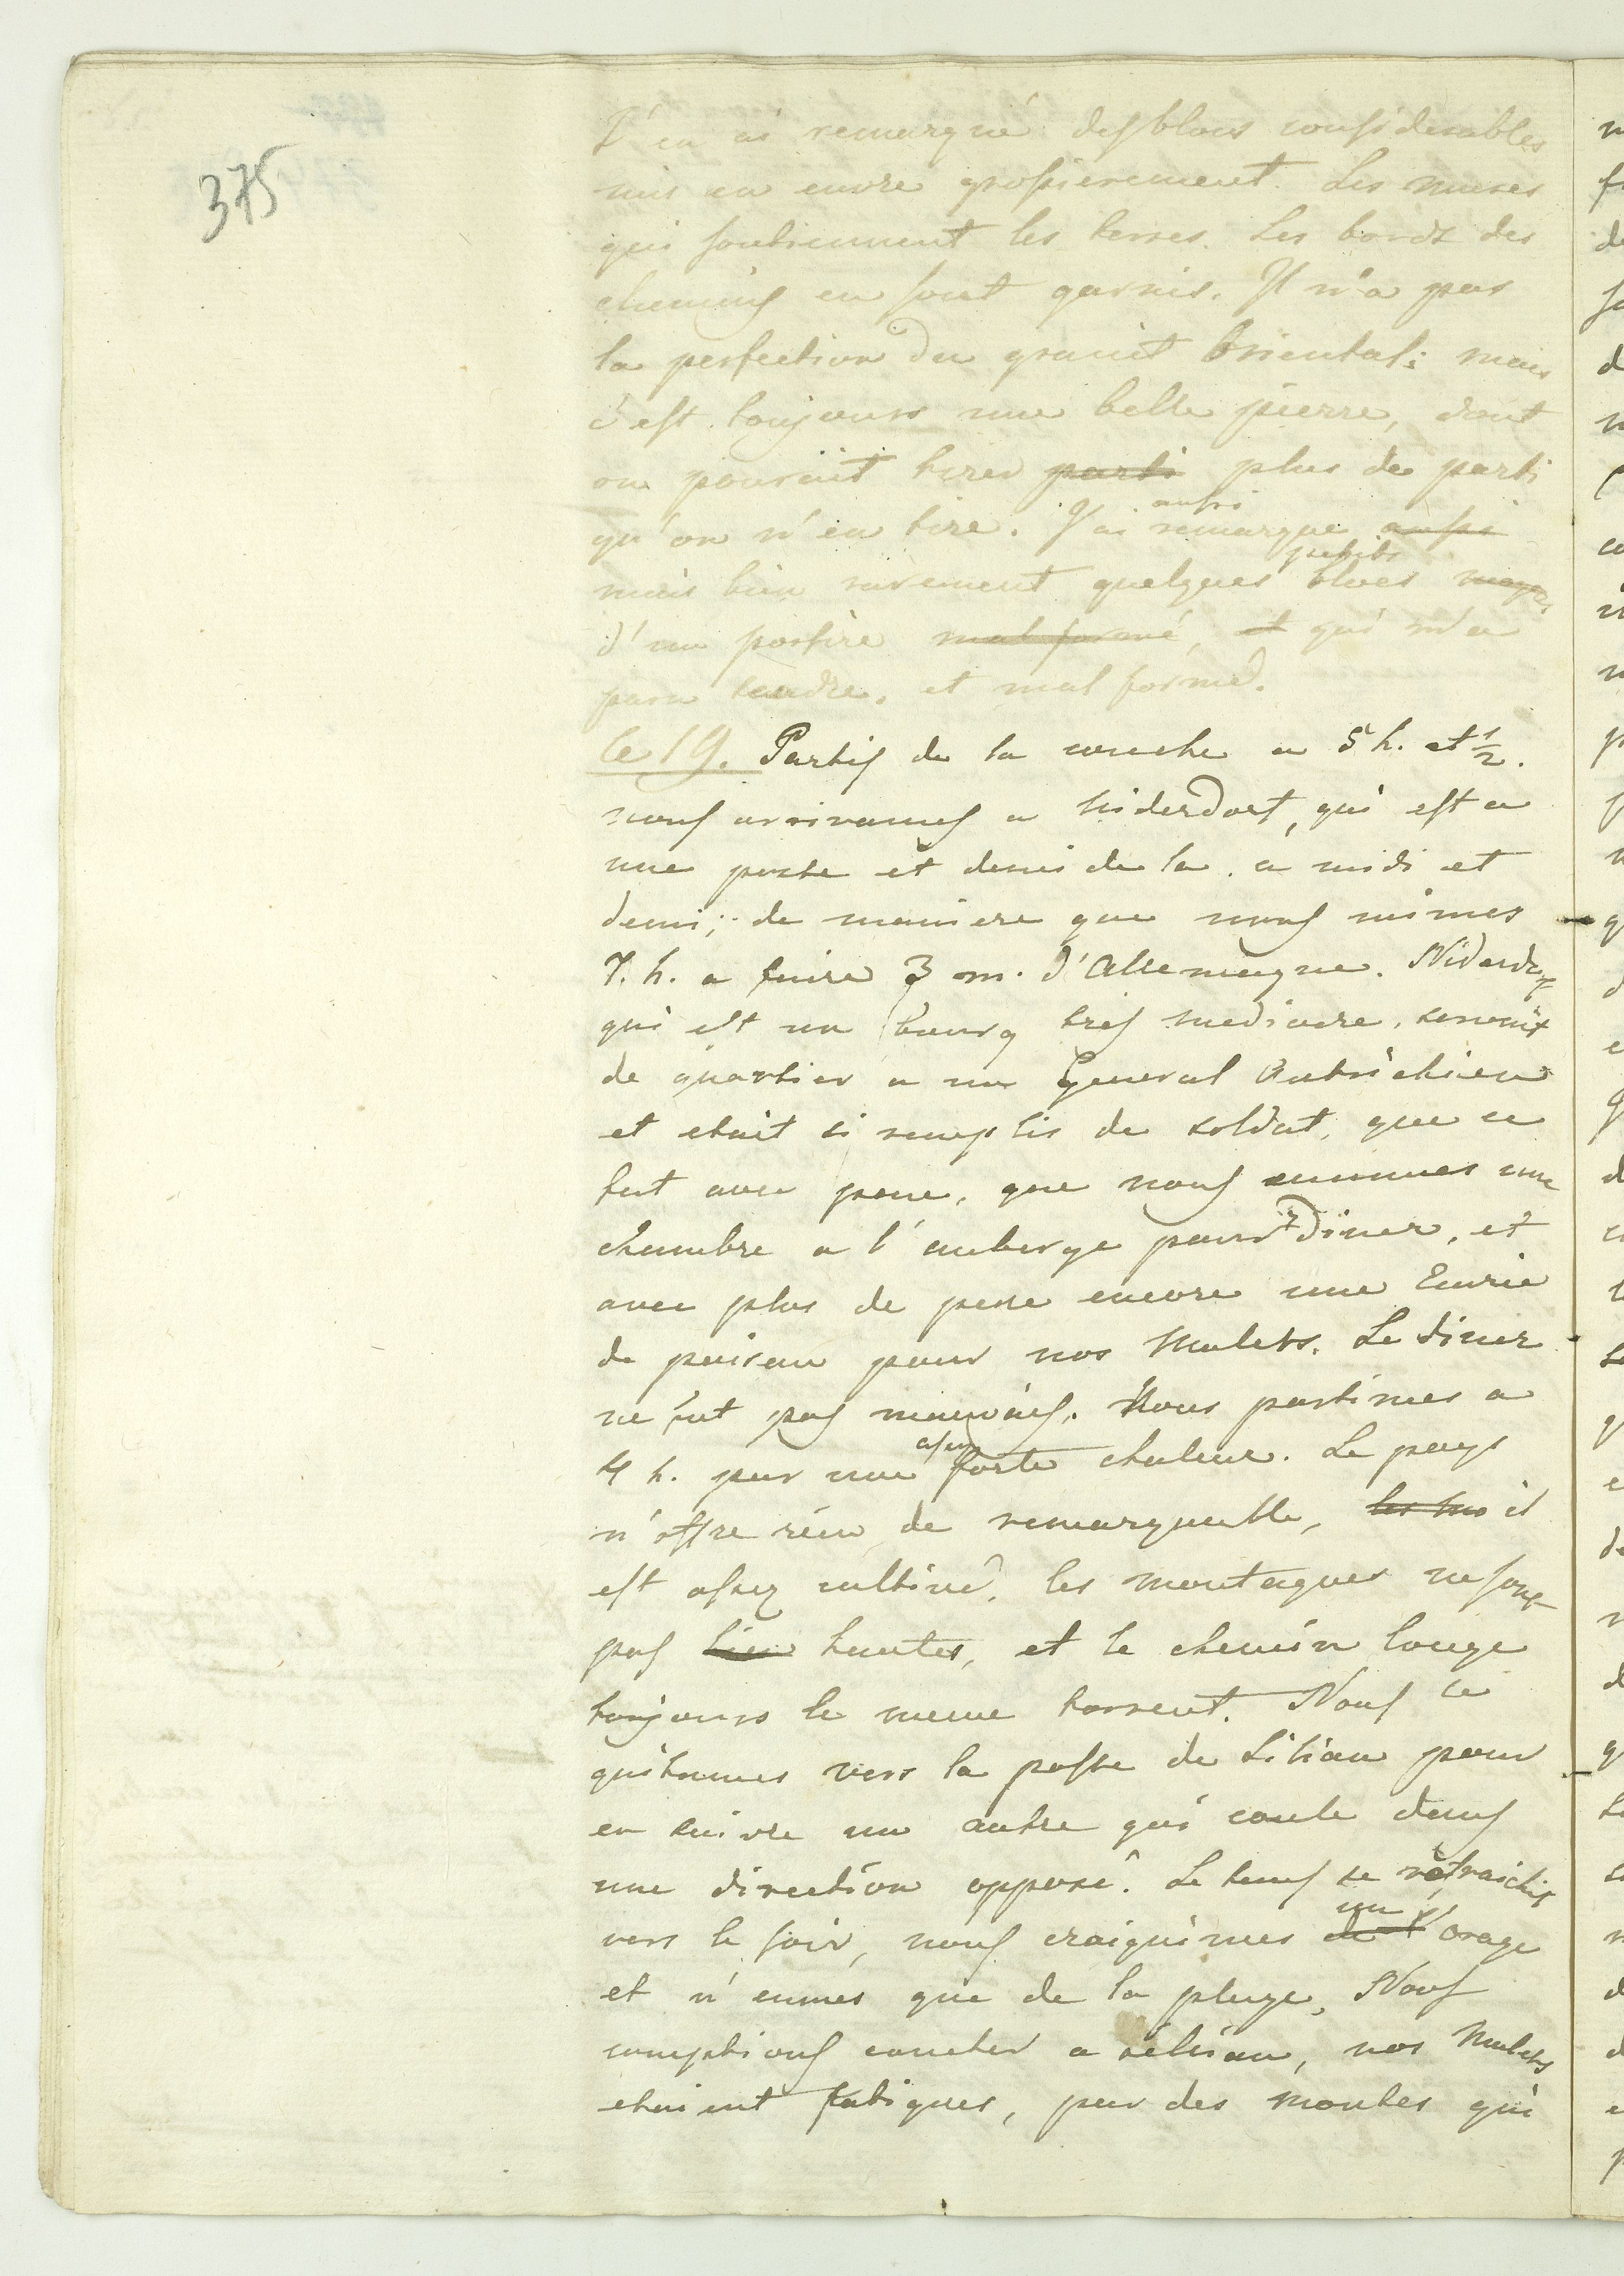 375
J'en ai remarqué des blocs considerables
mis en euvre grossierement. Les mures
qui soutiennent les terres. Les bords des
chemins en sont garnis. Il n'a pas
la perfection du granit Oriental; mais
c'est toujours une belle pierre, dont
on pouroit tirer parti plus de parti
qu'on n'en tire. J'ai aussi remarque aussi
mais bien rarement quelques petits blocs
d'un porfire mal formé, et qui m'a
paru tendre, et mal formé.
Le 19. Partis de la couche a 5 h. et 1/2.
nous arrivames a Niderdorf, qui est a
une poste et demi de la, a midi et
demi; de maniere que nous mimes
7. h. a faire 3 m. d'Allemagne. Niderdorf
qui est un bourg tres mediocre, servoit
de quartier a un General Autrichien
et etait si remplis de soldat, que ce
fut avec pene, que nous eumes une
chambre a l'auberge pour diner, et
avec plus de pene encore une Ecurie
de paisan pour nos Mulets. Le diner
ne fut pas mauvais. Nous partimes a
4 h. par une assez forte chaleur. Le pays
n'offre rien de remarquable, il
est assez cultivé, les montagnes ne sont
pas bien hautes, et le chemin longe
toujours le meme torrent. Nous le
quitames vers la poste de Silian pour
en suivre un autre qui coule dans
une direction opposé. Le tems se rafraichit
vers le soir, nous craiguimes un orage
et n'eumes que de la pluye, Nous
comptions coucher a silian, nos Mulets
etaient fatigues, par des montes qui